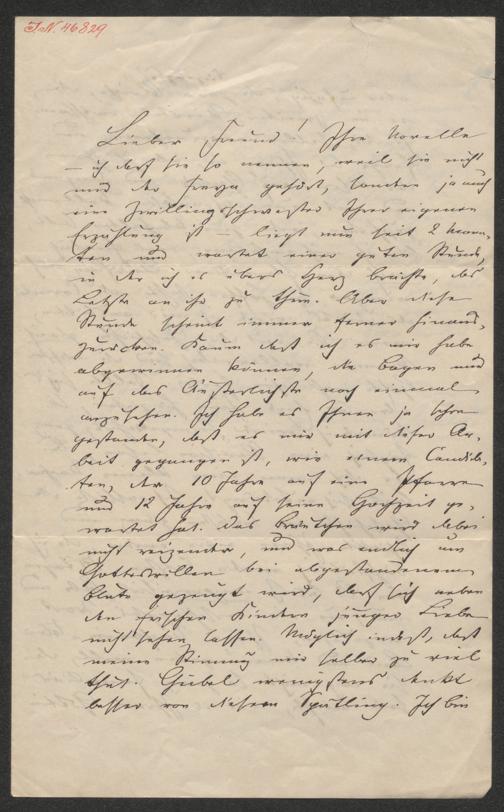 I.N. 46829
Lieber Freund! Ihre Novelle
– ich darf sie so nennen, weil sie nicht
nur der gehört, sondern ja auch
eine Zwillingsschwester Ihrer eigenen
Erzählung ist – liegt nun seit 2 Mona-
ten und wartet einer guten Stunde,
in der ich es übers Herz brächte, das
Letzte an ihr zu thun. Aber diese
Stunde scheint immer ferner hinaus-
zurücken. Kaum daß ich es mir habe
abgewinnen können, die Bogen nur
auf das Äußerlichste noch einmal
anzusehen. Ich habe es Ihnen ja schon
gestanden, daß es mir mit dieser Ar-
beit gegangen ist, wie einem Candida-
ten, der 10 Jahre auf eine Pfarre
und 12 Jahre auf seine Hochzeit ge-
wartet hat. Das Bräutchen wird dabei
nicht reizender, und was endlich um
Gotteswillen bei abgestandenem
Blute gezeugt wird, darf sich neben
den frischen Kindern junger Liebe
nicht sehen lassen. Möglich indeß, daß
meine Stimmung mir selber zu viel
thut. Gubel wenigstens denkt
besser von diesem Spätling. Ich bin